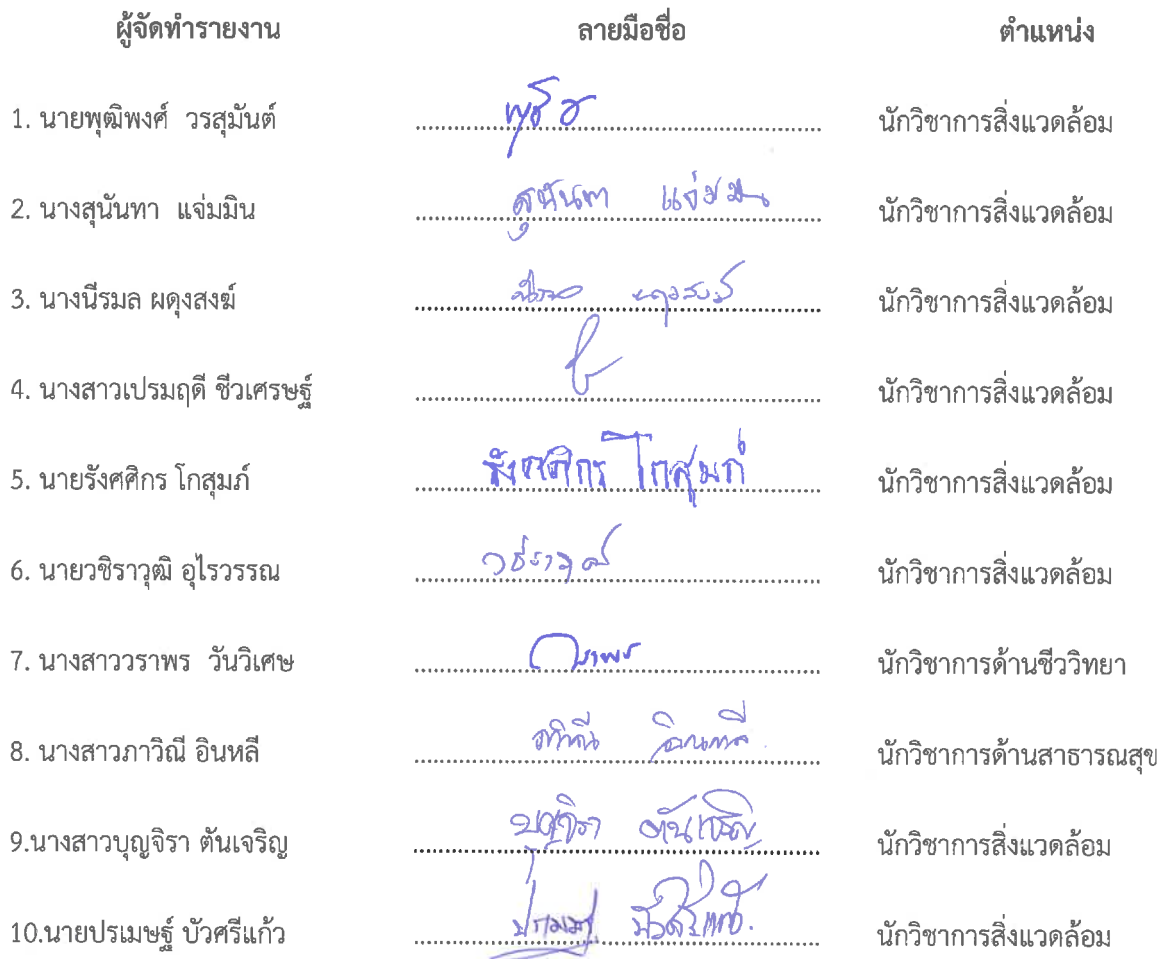 ผู้จัดทำรายงาน ลายมือชื่อ ตำแหน่ง
1. นายพุฒิพงศ์ วรสุมันต์ นักวิชาการสิ่งแวดล้อม
2. นางสุนันทา แจ่มมิน สุนันทา แจ่มมิน นักวิชาการสิ่งแวดล้อม
3. นางนีรมล ผดุงสงฆ์ นักวิชาการสิ่งแวดล้อม
4. นางสาวเปรมฤดี ชีวเศรษฐ์ นักวิชาการสิ่งแวดล้อม
5. นายรังศศิกร โกสุมภ์ รังศศิกร โกสุมภ์ นักวิชาการสิ่งแวดล้อม
6. นายวชิราวุฒิ อุไรวรรณ นักวิชาการสิ่งแวดล้อม
7. นางสาววราพร วันวิเศษ วราพร นักวิชาการด้านชีววิทยา
8. นางสาวภาวิณี อินหลี ภาวิณี อินหลี นักวิชาการด้านสาธารณสุข
9.นางสาวบุญจิรา ตันเจริญ บุญจิรา ตันเจริญ นักวิชาการสิ่งแวดล้อม
10.นายปรเมษฐ์ บัวศรีแก้ว ปรเมษฐ์ บัวศรีแก้ว นักวิชาการสิ่งแวดล้อม